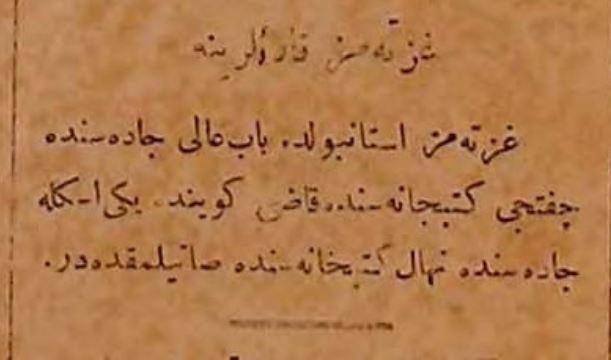 غزته‌مز قارؤلرینه
غزته‌مز استانبولده باب‌عالی جاده‌سنده
چفتجی کتبخانه‌سنده، قاضی کوینده یکی اسکله
جاده‌سنده نهال کتبخانه‌سنده صاتیلمقده‌در.